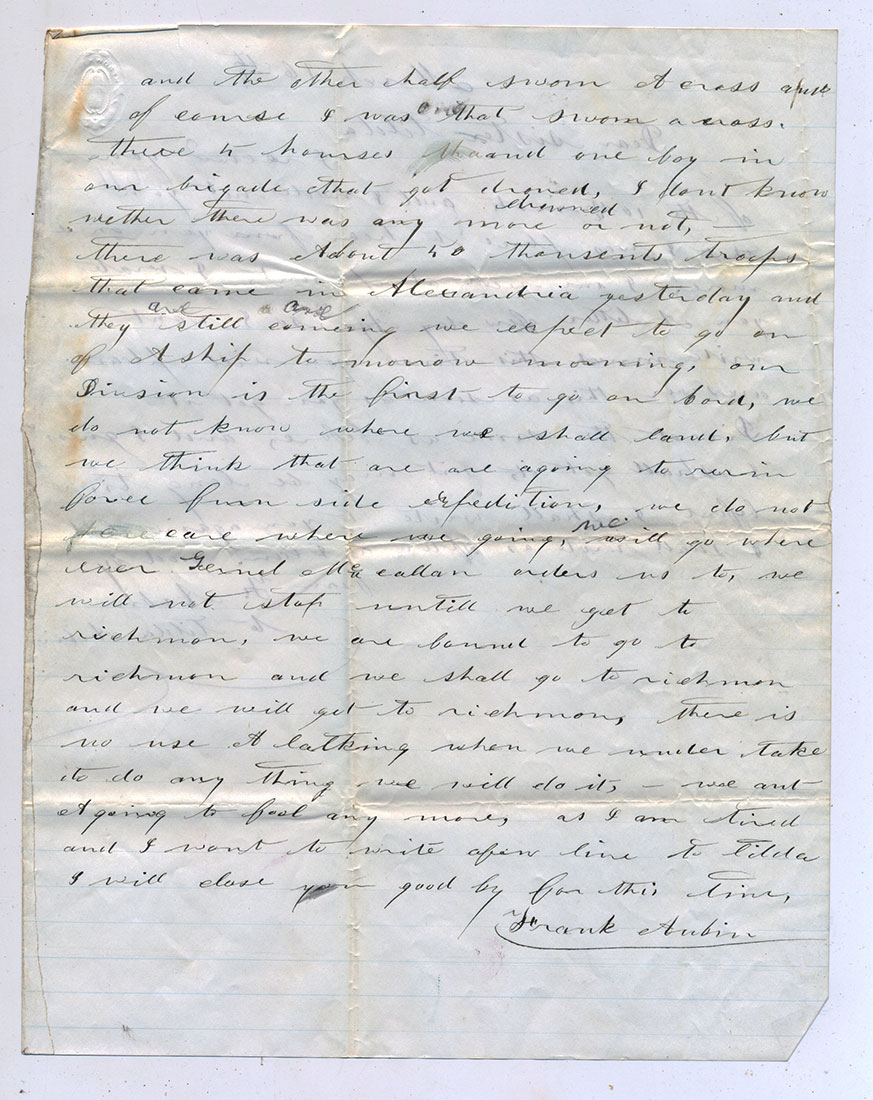 and the other half swom A cross and
of course I was one that swom a cross.
there 5 hourses and one boy in
our brigade that got droned, I dont know
drowned
wether there was any more or not,
there was About 50 thousents troops
that came in Alexandria yesterday and
they are still are comeing we expect to go on
of A ship to morrow morning, our
Divusion is the first to go on bord, we
do not know where we shall land, but
we think that are are agoing to rerin
force burn side expedition, we do not
care where we going, we will go where
ever Gernel Mc callan orders us to, we
will not stop untill we get to
richmon, we are bound to go to
richmon and we shall go to richmon
and we will get to richmon, there is
no use A talking when we under take
to do any thing we will do it, - we ant
A going to fool any more, as I am tired
and I want to write afew line to Tilda
I will close good by for this time,
Frank Aubin